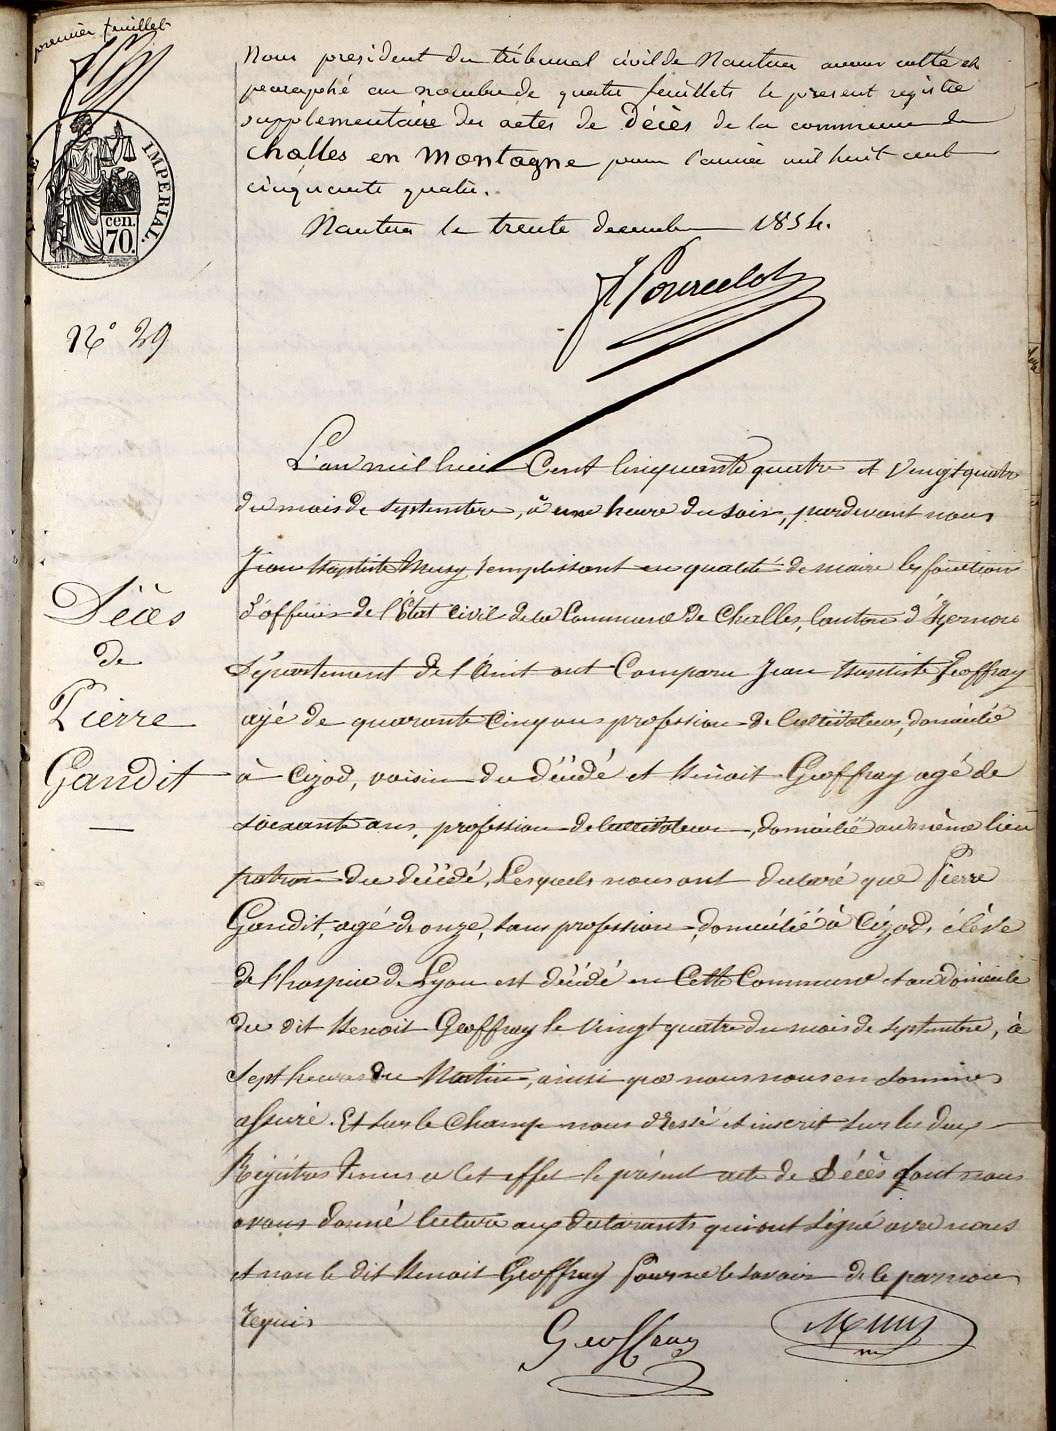 premier feuillet
Nous président du tribunal civil de Nantua avons cotté et
paraphé au nombre de quatre feuillets le présent registre
supplementaire des actes de Décès de la commune de
Challes en Montagne pour l'année mil huit cent
cinquante quatre.
Nantua le trente decembre 1854.
IMPERIAL.
cen.
70.
N° 29
L'an mil huit Cent Cinquante quatre et vingt quatre
du mois de septembre, à une heure du soir, pardevant nous
Jean Baptiste Musy remplissant en qualité de maire les fonctions
d'officier de l'État civil de la Commune de Challes, Canton d'Izernore
Département de l'Ain ont Comparu Jean Baptiste Geoffray
agé de quarante Cinq ans profession de Cultivateur, domicilié
à Cizod, voisin du décédé et Benoit Geoffray agé de
soixante ans, profession de Cultivateur, domicilié au même lieu
patron du décédé, Lesquels nous ont declaré que Pierre
Gandit, agé de onze, sans profession, domicilié à Cizod, élève
de l'hospice de Lyon est décédé en Cette Commune et au domicile
du dit Benoit Geoffray le vingt quatre du mois de septembre, à
sept heures du Matin, ainsi que nous nous en sommes
assuré. Et sur le Champ nous dressé et inscrit sur les deux
Régistres tenus a Cet effet le présent acte de Décès dont nous
avons donné lecture aux declarants qui ont signé avec nous
et non le dit Benoit Geoffray pour ne le savoir de le par nous
requis
Décès
de
Pierre
Gandit
Geoffray
Musy